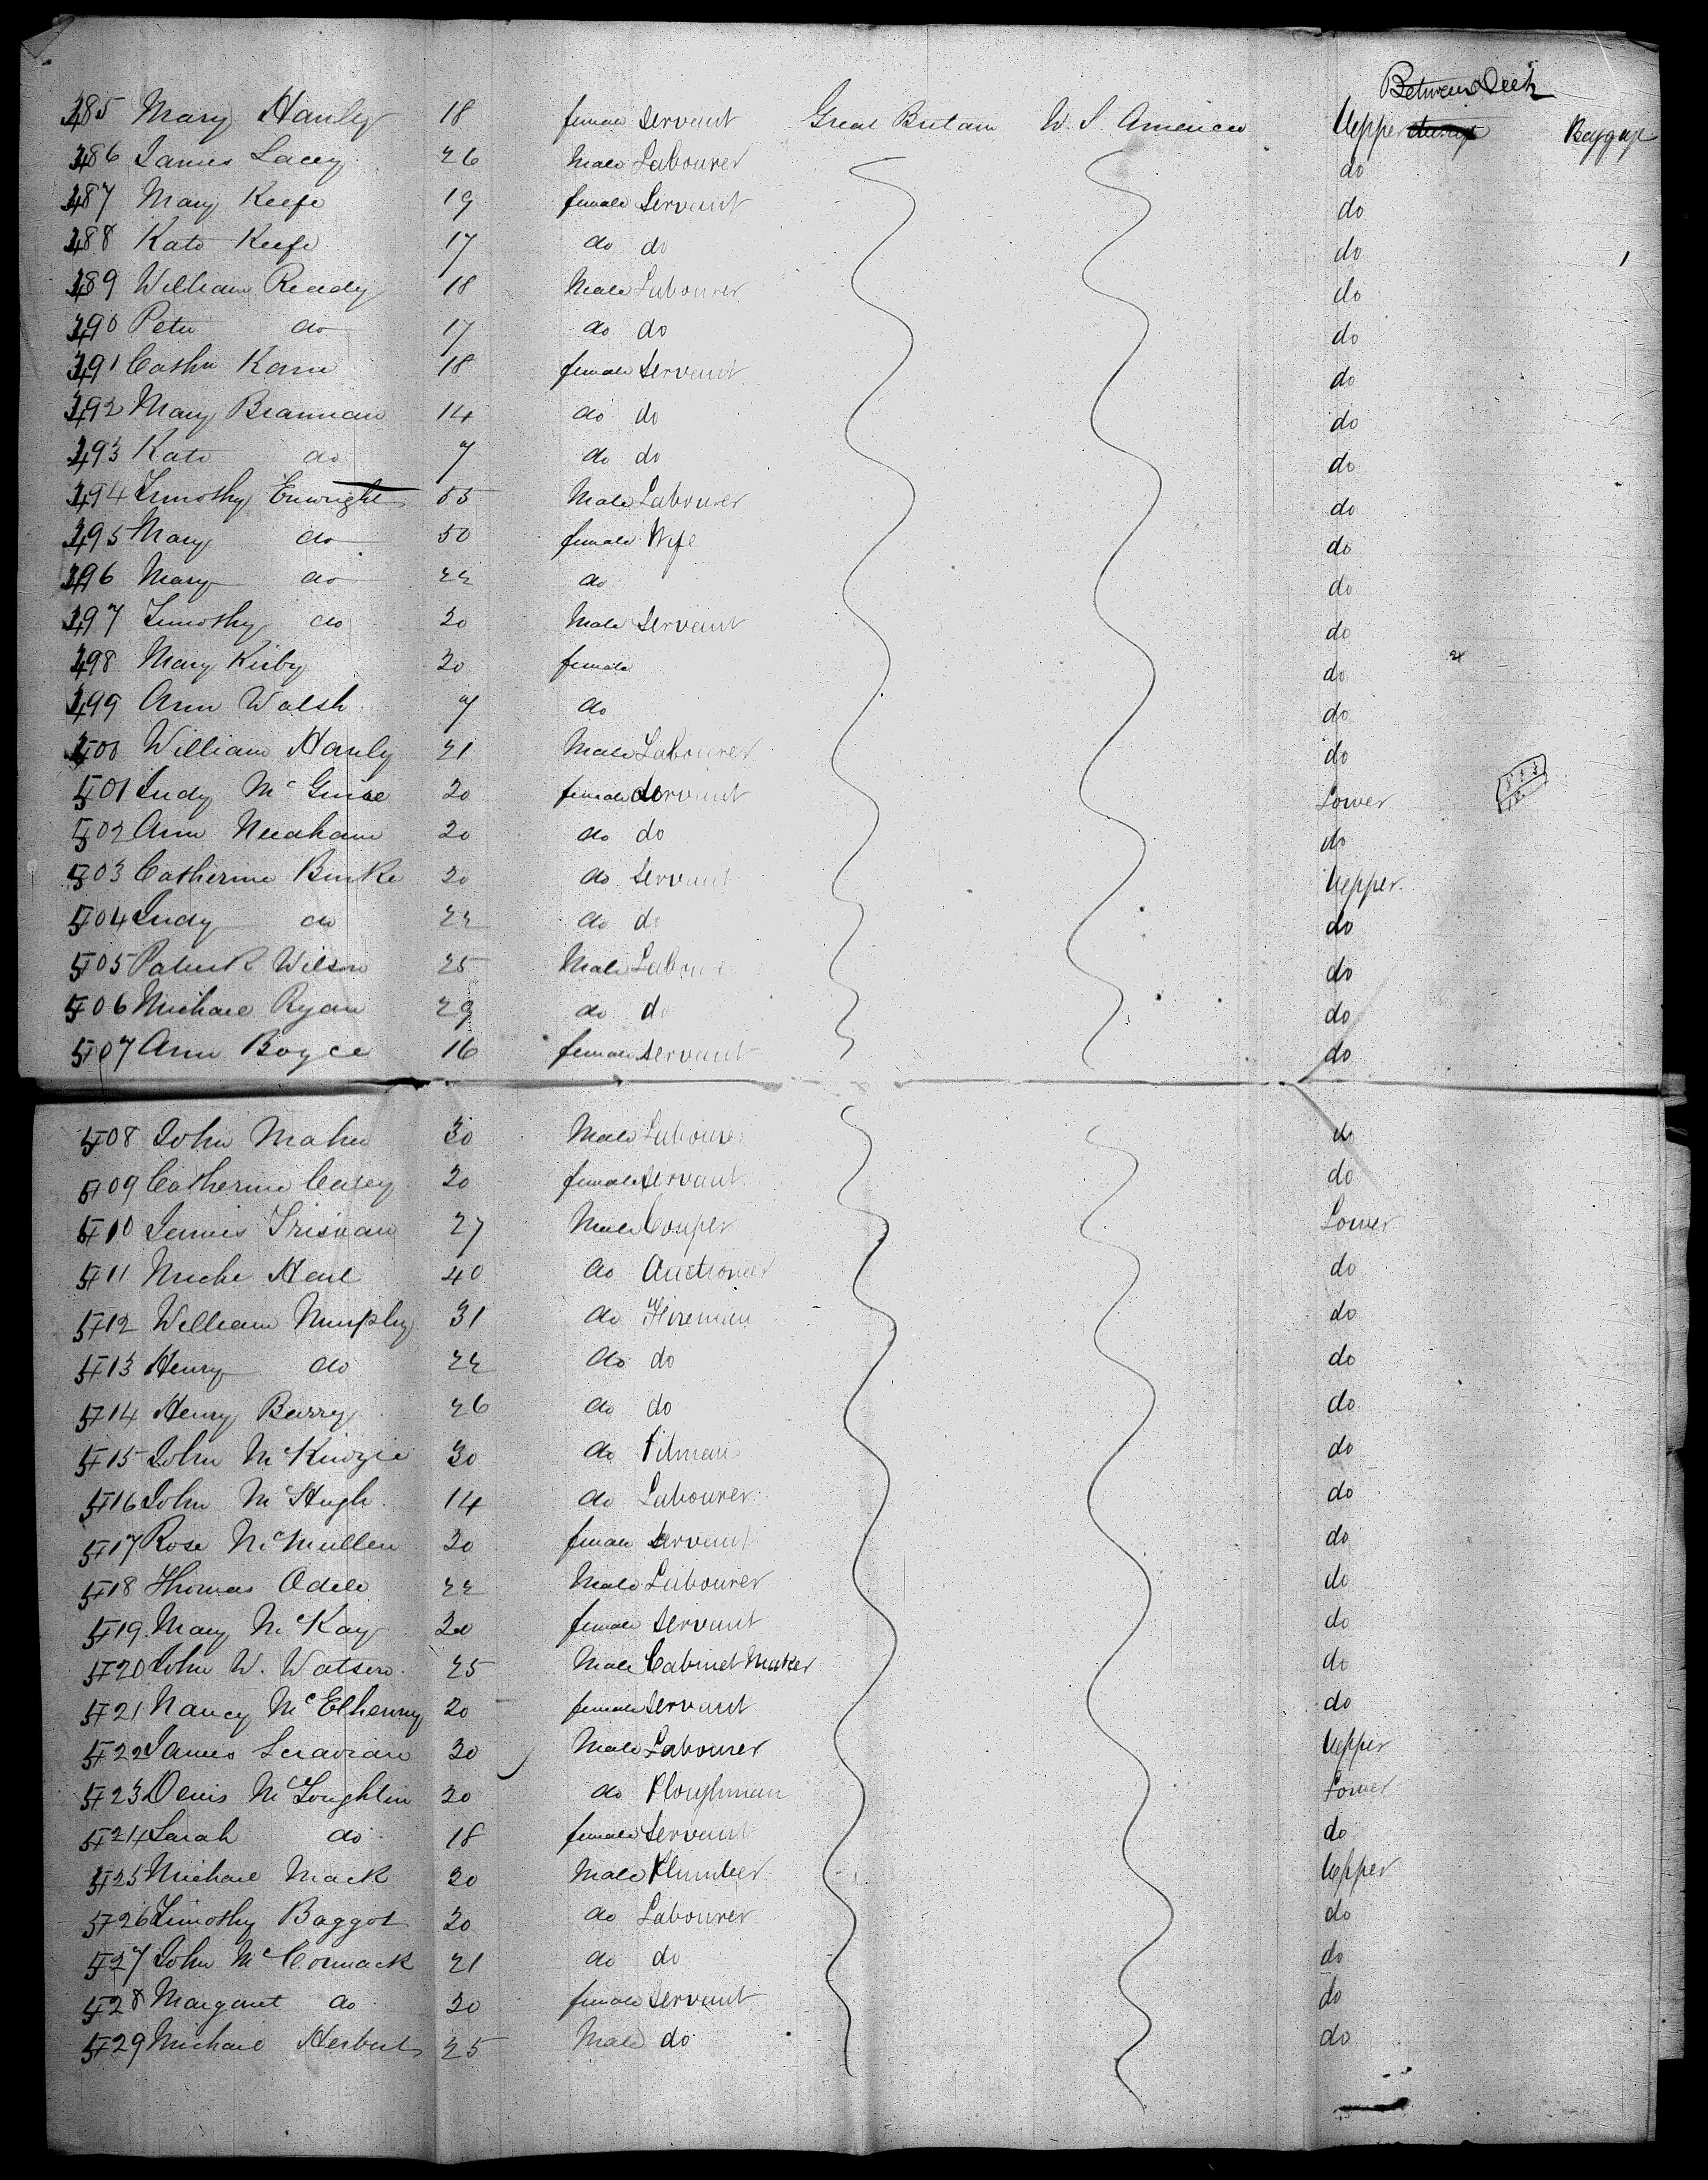 Between Deck
485 Mary Hanly 18 female Servant Great Britain U. S. America Upper Baggage
486 James Lacey 26 Male Labourer do
487 Mary Keefe 19 female Servant do
488 Kate Keefe 17 do do do
489 William Ready 18 Male Labourer do
490 Peter do 17 do do do
491 Cathn Kane 18 female Servant do
492 Mary Brannan 14 do do do
493 Kate do 7 do do do
494 Timothy Enwright 55 Male Labourer do
495 Mary do 50 female Wife do
496 Mary do 22 do do
497 Timothy do 20 Male Servant do
498 Mary Kirby 20 female do
499 Ann Walsh 7 do do
500 William Hanly 21 Male Labourer do
501 Judy McGuire 20 female Servant Lower
502 Ann Needham 20 do do do
503 Catherine Burke 20 do Servant Upper
504 Judy do 22 do do do
505 Patrick Wilson 25 Male Labour do
506 Michael Ryan 29 do do do
507 Ann Boyce 16 female Servant do
508 John Maher 30 Male Labourer do
509 Catherine Casey 20 female Servant do
510 Dennis Trisnan 27 Male Couper Lower
511 Miche Heil 40 do Auctioneer do
512 William Murphy 31 do Fireman do
513 Henry do 22 do do do
514 Henry Barry 26 do do do
515 John McKinzie 30 do Pitman do
516 John McHugh 14 do Labourer do
517 Rose McMullen 20 female Servant do
518 Thomas Odell 22 Male Labourer do
519 Mary McKay 20 female Servant do
520 John W. Watson 25 Male Cabinet Maker do
521 Nancy McElhenny 20 female Servant do
522 James 30 Male Labourer Upper
523 Denis McLoughlin 20 do Ploughman Lower
524 Sarah do 18 female Servant do
525 Michael Mack 20 Male Plumber Upper
526 Timothy Baggot 20 do Labourer do
527 John McCormack 21 do do do
528 Margaret do 20 female Servant do
529 Michael Herbert 25 Male do do